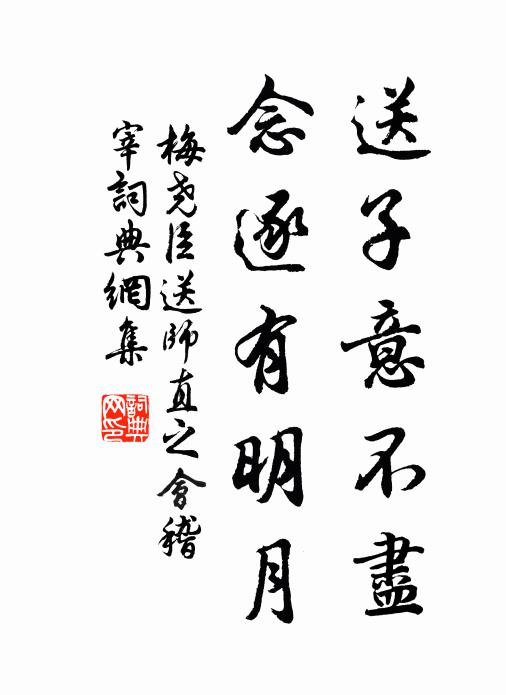 送子意不盡
念逐有明月
梅尧臣送師直之會稽
宰詞典網集
詞典
网印